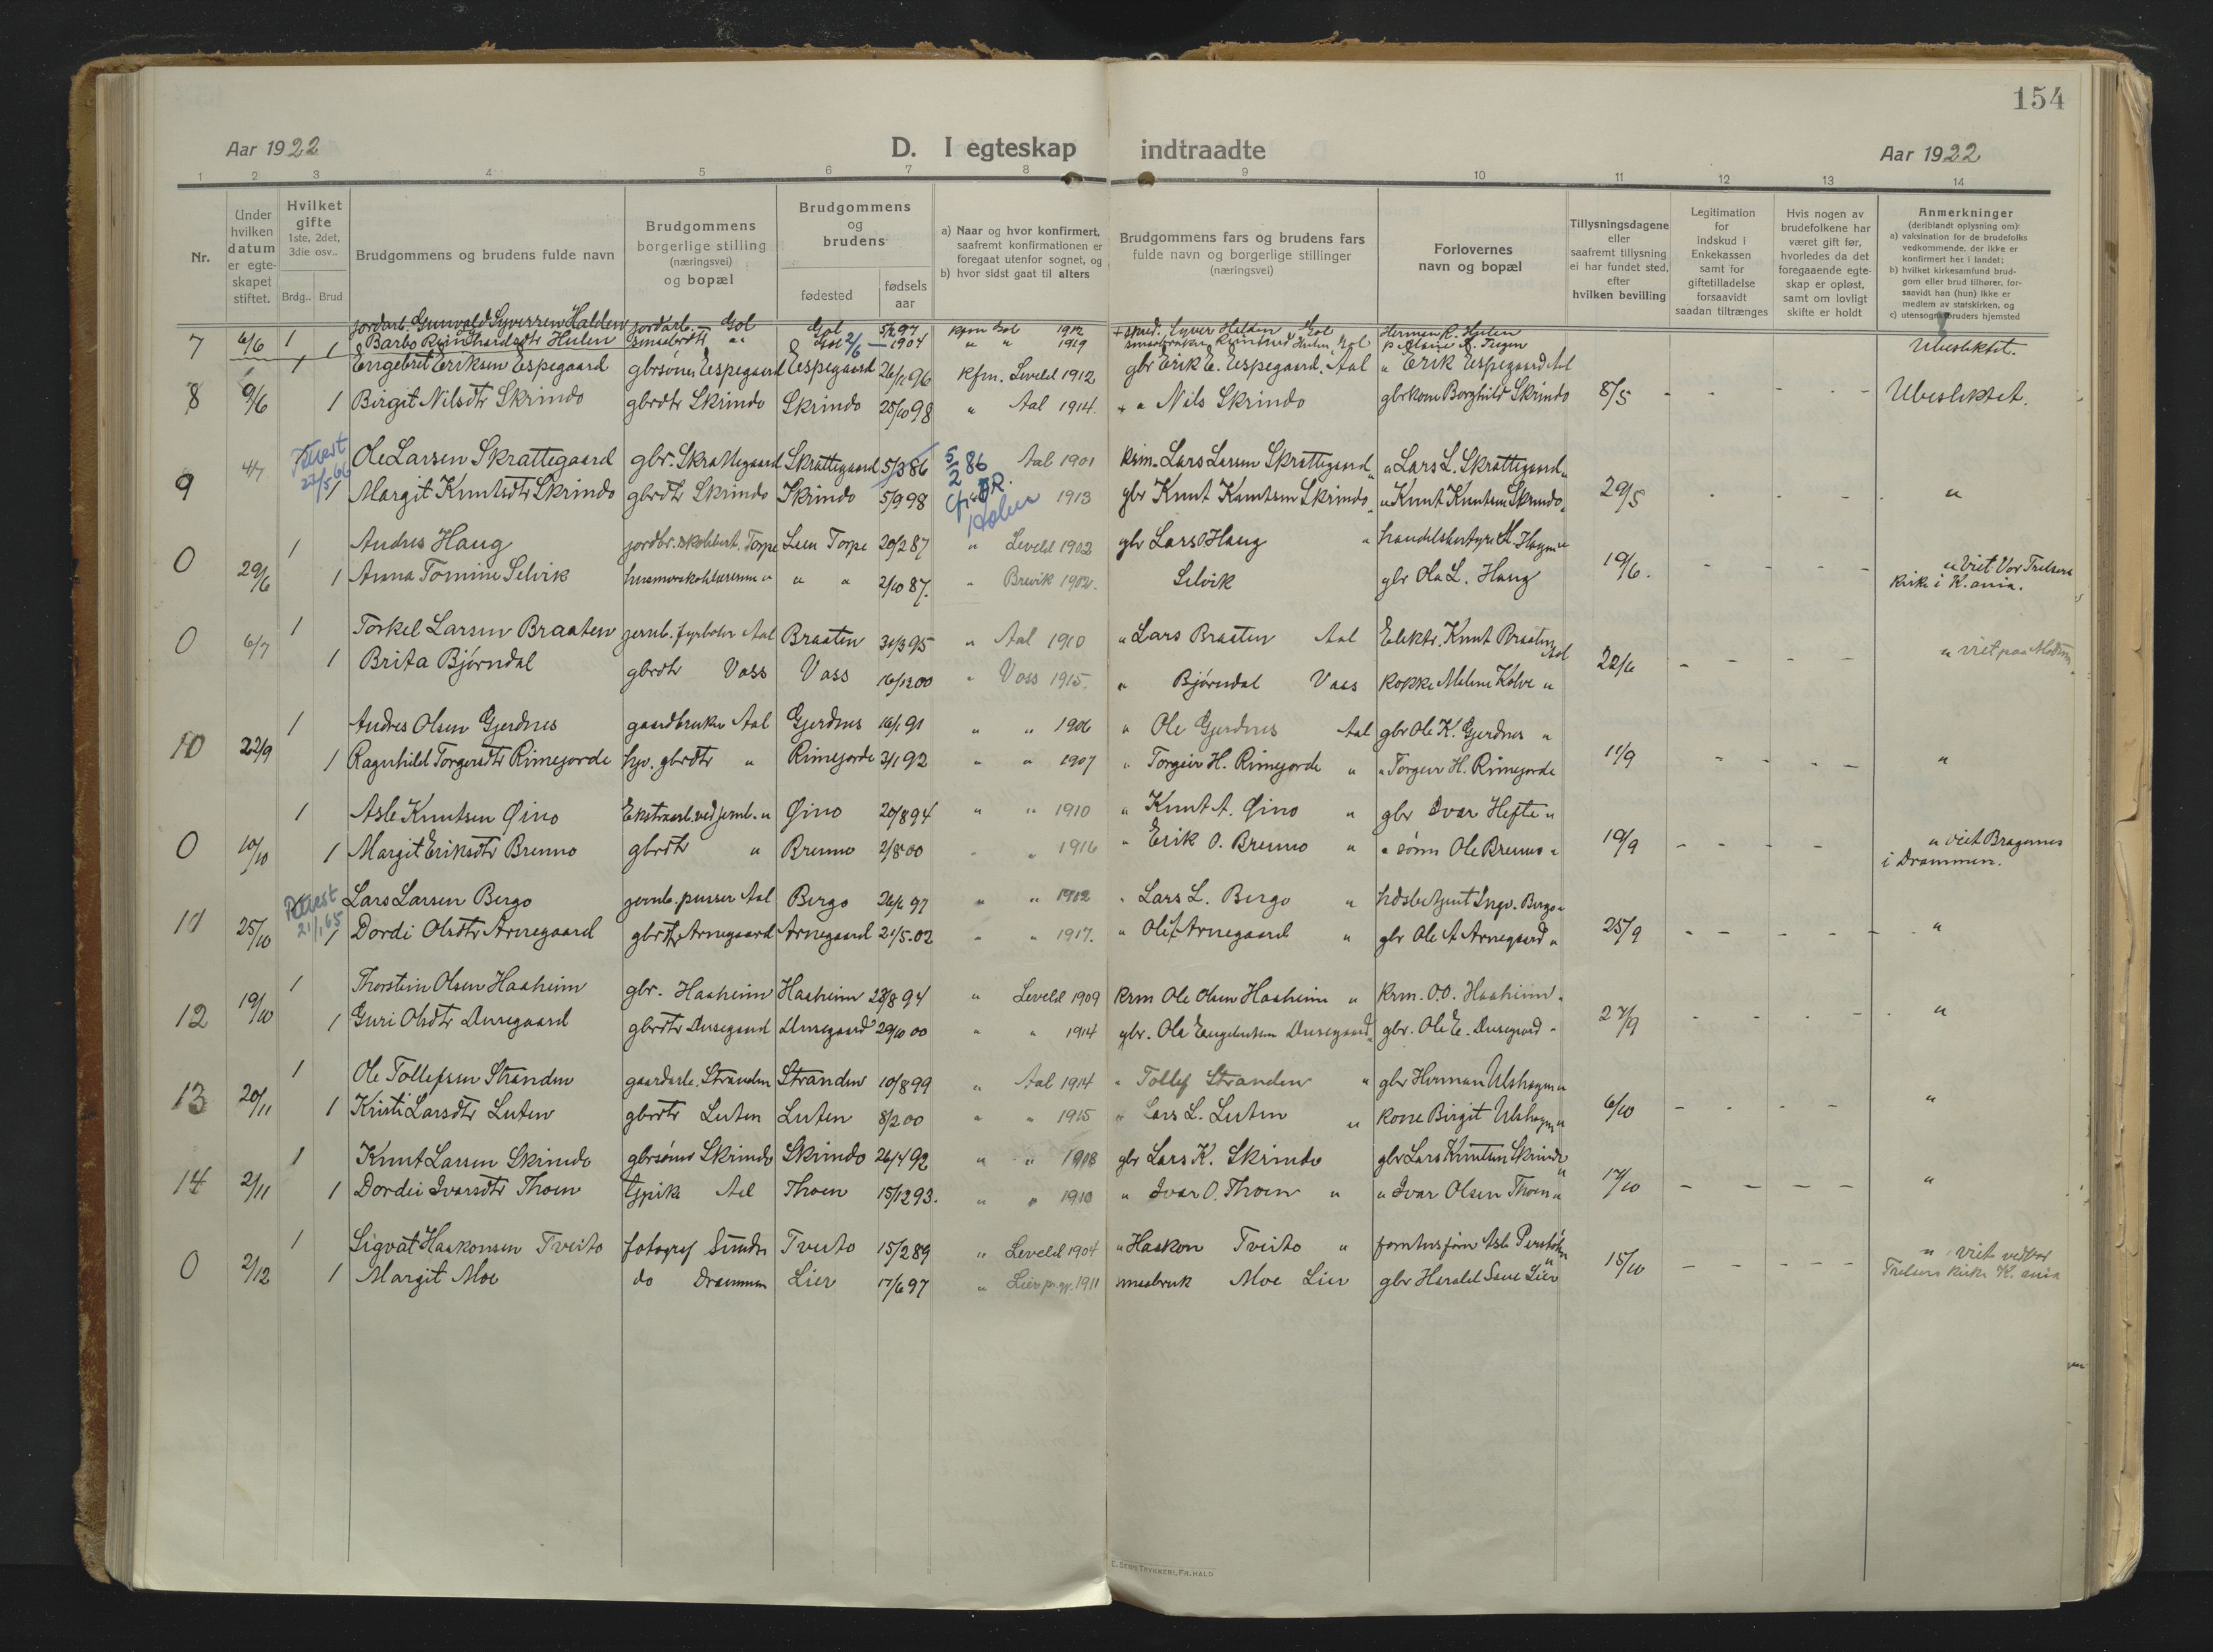 154
Aar 1922
D. I egteskap indtraadte
Aar 1922
1 2 3 4 5 6 7 8 9 10 11 12 13 14
Nr.
Under hvilken datum er egte-skapet stiftet.
Hvilket gifte 1ste, 2det, 3die osv..
Brdg.. Brud
Brudgommens og brudens fulde navn
Brudgommens borgerlige stilling (næringsvei) og bopæl
Brudgommens og brudens
fødested
fødsels aar
a) Naar og hvor konfirmert, saafremt konfirmationen er foregaat utenfor sognet, og
b) hvor sidst gaat til alters
Brudgommens fars og brudens fars fulde navn og borgerlige stillinger (næringsvei)
Forlovernes navn og bopæl
Tillysningsdagene eller saafremt tillysning ei har fundet sted, efter hvilken bevilling
Legitimation for indskud i Enkekassen samt for giftetilladelse forsaavidt saadan tiltrænges
Hvis nogen av brudefolkene har været gift før, hvorledes da det foregaaende egte-skap er opløst, samt om lovligt skifte er holdt
Anmerkninger (deriblandt oplysning om):
a) vaksination for de brudefolks vedkommende, der ikke er konfirmert her i landet;
b) hvilket kirkesamfund brud-gom eller brud tilhører, for-saavidt han (hun) ikke er medlem av statskirken, og
c) utensogns bruders hjemsted
7 6/6 1 jordarb. Gunvald Syversen Halden jordarb. Gol Gol 5/2 97 kfm Gol 1912 + smed. Syver Halden Gol Herman R. Hulen
1 Barbo Reinhardsdtr Hulen " Gol 2/6 1904 " " 1919 Hulen Gol
Ubesliktet.
1 Engebret Eriksen Espegaard gbrsønn Espegaard Espegaard 26/11 96 kfm. Leveld 1912 gbr Erik E. Espegaard. Aal " Erik Espegaard Aal
8 9/6 1 Birgit Nilsdtr Skrindo gbrdtr Skrindo Skrindo 25/10 98 " Aal 1914. + " Nils Skrindo gbrkone Borghild Skrindo 8/5 - - - - Ubesliktet.
4/7 22/5 66 Ole Larsen Skrattegaard gbr. Skrattegaard Skrattegaard 5/3 86 5/2 86 Aal 1901 krm. Lars Larsen Skrattegaard " Lars L. Skrattegaard "
9 1 Margit Knutsdtr Skrindo gbrdtr Skrindo Skrindo 5/9 98 1913 gbr Knut Knutsen Skrindo " " Knut Knutsen Skrindo " 29/5 - - - "
1 Andres Haug Torpe Lien Torpe 20/2 87 " Leveld 1902 gbr Lars O Haug "
0 29/6 1 Anna Tomine Selvik " " 2/10 87. " Brevik 1902. Selvik gbr Ola L. Haug 19/6. - - - - " viet Vor Frelsers
kirke i K.ania.
1 Torkel Larsen Braaten jernb. fyrbøter Aal Braaten 30/3 95 " Aal 1910 " Lars Braaten Aal Elektr. Knut Braaten Aal
0 6/7 1 Brita Bjørndal gbrdtr Voss Voss 16/12 00 " Voss 1915. " Bjørndal Voss kokke Malene Kolve " 22/6 - - - - " viet paa Modum
1 Andres Olsen Gjerdnes gaardbruker Aal Gjerdnes 16/1 91 " " 1906 " Ole Gjerdnes Aal gbr Ole K. Gjerdnes "
10 22/9 1 Ragnhild Torgersdtr Rimegorde hjv. gbrdtr " Rimegorde 3/1 92 " " 1907 " Torgeir H. Rimegorde " " Torgeir H. Rimegorde 11/9 - - - - "
1 Asle Knutsen Øino Ekstraarb. ved jernb. " Øino 20/8 94 " " 1910 " Knut A. Øino " gbr Ivar Hefte "
0 10/10 1 Margit Eriksdtr Brenno gbrdtr " Brenno 2/8 00 " " 1916 " Erik O. Brenno " " sønn Ole Brenno " 19/9 - - - - " viet Bragernes
i Drammen.
21/1 65 Lars Larsen Bergo jernb. pusser Aal Bergo 26/6 97 " " 1912 " Lars L. Bergo "
11 25/10 1 Dordi Olsdtr Arnegaard gbrdtr Arnegaard Arnegaard 21/5.02 " " 1917. " Ole A Arnegaard " gbr Ole A Arnegaard " 25/9 - - - - - "
1 Thorstein Olsen Haaheim gbr. Haaheim Haaheim 28/8 94 " Leveld 1909 krm Ole Olsen Haaheim " krm. O.O. Haaheim "
12 19/10 1 Guri Olsdtr Dusegaard gbrdtr Dusegaard Dusegaard 29/10 00 " " 1914 gbr. Ole Engebretsen Dusegaard " gbr. Ole E. Dusegaard " 27/9 - - - - "
1 Ole Tollefsen Stranden gaardarb. Stranden Stranden 10/8 99 " Aal 1914 " Tollef Stranden " gbr Herman Ulshagen "
13 20/11 1 Kristi Larsdtr Luten gbrdtr Luten Luten 8/2 00 " " 1915 " Lars L. Luten " kone Birgit Ulshagen " 6/10 - - - - "
1 Knut Larsen Skrindo gbrsønn Skrindo Skrindo 26/4 92 " " 1908 gbr Lars K. Skrindo gbr Lars Knutsen Skrindo "
14 2/11 1 Dordei Ivarsdtr Thoen tjpike Aal Thoen 15/12 93. " " 1910 " Ivar O. Thoen " " Ivar Olsen Thoen " 17/10 - - - - "
1 Sigvat Haakonsen Tveito fotograf Sundre Tveito 15/2 89 " Leveld 1904 " Haakon Tveito "
0 2/12 1 Margit Moe do Drammen Lier 17/6 97 " Lier pr.gj. 1911 Moe Lier gbr Harald Lier 15/10 - - - - " viet ved Vor
Frelsers kirke K.ania
E. Sem's Trykkeri, Fr.hald